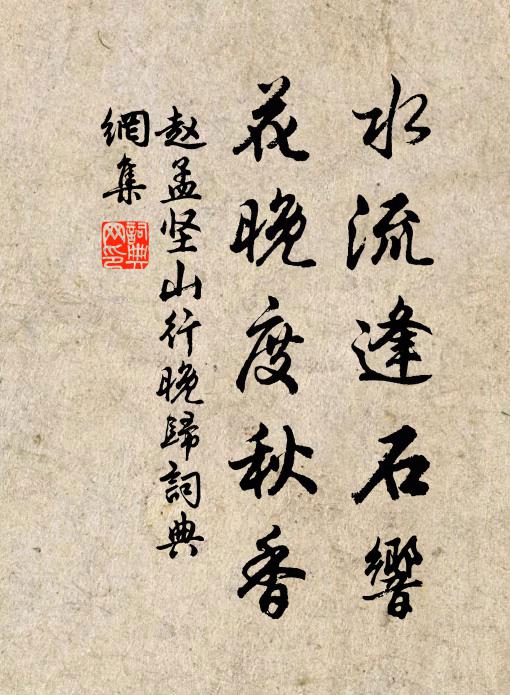 水流逢石響
花晚度秋香
赵孟坚山行晚歸詞典
網集
詞典
网印